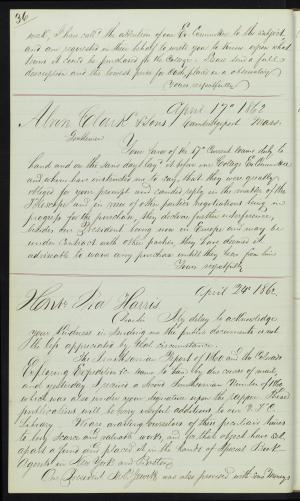 36
week, I have called the attention of our Ex. Committee to the subject
and am requested in their behalf to write you to know upon what
terms it could be purchased for the College. Please send a full
description and the lowest price for each place in a observatory
Yours respectfully
April 17th 1862
Alvan Clark & Sons Cambridgeport Mass.
Gentlemen
Your favor of the 9th Current came duly to
hand and on the same day lay it before our College Ex. Committee
and whom have instructed me to say, that they were greatly
obliged for your prompt and candid reply in the matter of the
Telescope and in view of other parties negotiations being in
progress for the purchase, they decline further interference,
besides our President being now in Europe and may be
under Contract with other parties, they have deemed it
advisable to waive any purchase until they hear from him
Yours respectfully
April 24th 1862.
Hon. Ira Harris
Dear Sir My delay to acknowledge
your kindness in sending me the public documents is not
the less appreciated by that circumstance.
The Smithsonian Report of 1860 and the Colorado
Exploring Expedition &c. came to hand by due course of mail,
and yesterday I received a Second Smithsonian Number of 1860
which was also under your signature upon the wrapper. These
publications will be very useful additions to our V. F. C.
Library. We are availing ourselves of these peculiar times
to buy scarce and valuable works, and for that object have set
apart a fund and placed it in the hands of special Book
Agents in New York and Boston.
Our President Mr. Jewett was also provided with some money